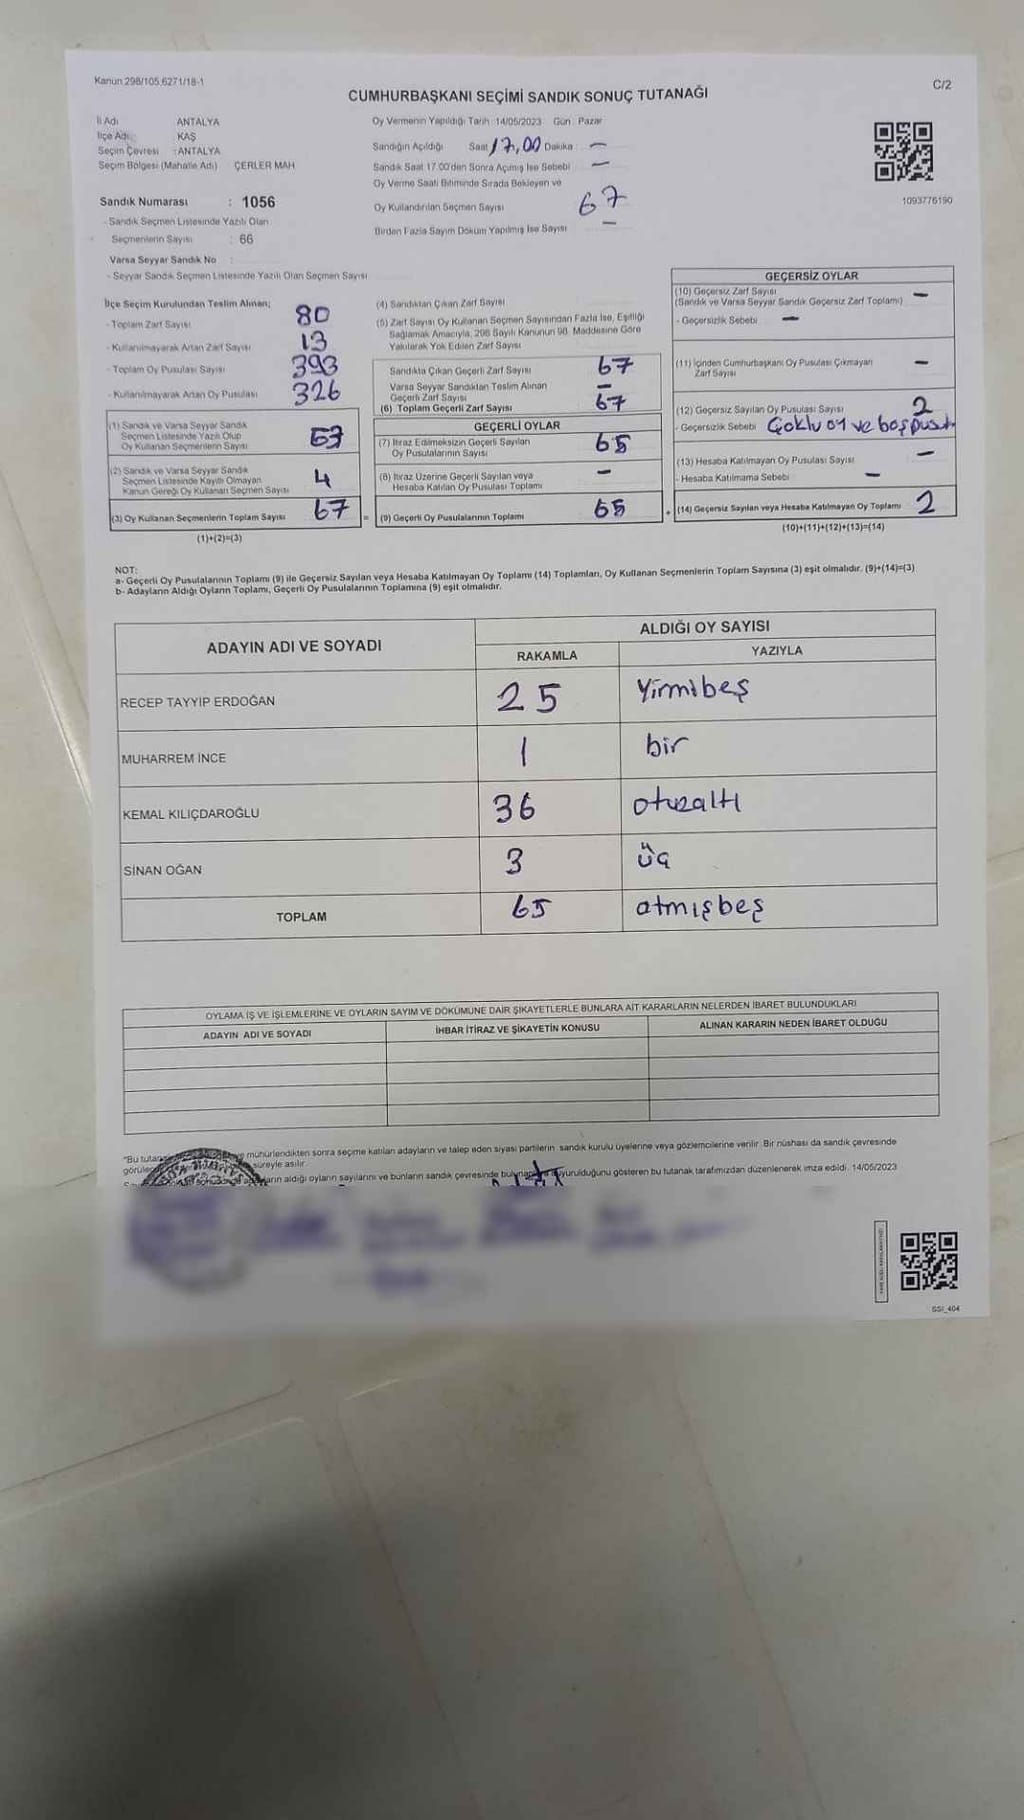 Kanun 298/105,6271/18-1
C/2
CUMHURBAŞKANI SEÇİMİ SANDIK SONUÇ TUTANAĞI
İl Adı ANTALYA
İlçe Adı KAŞ
Seçim Çevresi : ANTALYA
Seçim Bölgesi (Mahalle Adı) ÇERLER MAH
Sandık Numarası : 1056
- Sandık Seçmen Listesinde Yazılı Olan
Seçmenlerin Sayısı : 66
Varsa Seyyar Sandık No :
- Seyyar Sandık Seçmen Listesinde Yazılı Olan Seçmen Sayısı
Oy Vermenin Yapıldığı Tarih :14/05/2023 Gün : Pazar
Sandığın Açıldığı Saat 17,00 Dakika : —
Sandık Saat 17.00'den Sonra Açılmış İse Sebebi : —
Oy Verme Saati Bitiminde Sırada Bekleyen ve
Oy Kullandırılan Seçmen Sayısı 67
Birden Fazla Sayım Döküm Yapılmış İse Sayısı —
1093776190
İlçe Seçim Kurulundan Teslim Alınan;
- Toplam Zarf Sayısı 80
- Kullanılmayarak Artan Zarf Sayısı 13
- Toplam Oy Pusulası Sayısı 393
- Kullanılmayarak Artan Oy Pusulası 326
(1) Sandık ve Varsa Seyyar Sandık
Seçmen Listesinde Yazılı Olup
Oy Kullanan Seçmenlerin Sayısı 63
(2) Sandık ve Varsa Seyyar Sandık
Seçmen Listesinde Kayıtlı Olmayan
Kanun Gereği Oy Kullanan Seçmen Sayısı 4
(3) Oy Kullanan Seçmenlerin Toplam Sayısı 67
(1)+(2)=(3)
(4) Sandıktan Çıkan Zarf Sayısı
(5) Zarf Sayısı Oy Kullanan Seçmen Sayısından Fazla İse, Eşitliği
Sağlamak Amacıyla, 298 Sayılı Kanunun 98. Maddesine Göre
Yakılarak Yok Edilen Zarf Sayısı
Sandıkta Çıkan Geçerli Zarf Sayısı 67
Varsa Seyyar Sandıktan Teslim Alınan
Geçerli Zarf Sayısı —
(6) Toplam Geçerli Zarf Sayısı 67
GEÇERLİ OYLAR
(7) İtiraz Edilmeksizin Geçerli Sayılan
Oy Pusulalarının Sayısı 65
(8) İtiraz Üzerine Geçerli Sayılan veya
Hesaba Katılan Oy Pusulası Toplamı —
= (9) Geçerli Oy Pusulalarının Toplamı 65
GEÇERSİZ OYLAR
(10) Geçersiz Zarf Sayısı
(Sandık ve Varsa Seyyar Sandık Geçersiz Zarf Toplamı) —
- Geçersizlik Sebebi —
(11) İçinden Cumhurbaşkanı Oy Pusulası Çıkmayan
Zarf Sayısı —
(12) Geçersiz Sayılan Oy Pusulası Sayısı 2
- Geçersizlik Sebebi Çoklu oy ve boş
(13) Hesaba Katılmayan Oy Pusulası Sayısı —
- Hesaba Katılmama Sebebi —
+ (14) Geçersiz Sayılan veya Hesaba Katılmayan Oy Toplamı 2
(10)+(11)+(12)+(13)=(14)
NOT:
a- Geçerli Oy Pusulalarının Toplamı (9) ile Geçersiz Sayılan veya Hesaba Katılmayan Oy Toplamı (14) Toplamları, Oy Kullanan Seçmenlerin Toplam Sayısına (3) eşit olmalıdır. (9)+(14)=(3)
b- Adayların Aldığı Oyların Toplamı, Geçerli Oy Pusulalarının Toplamına (9) eşit olmalıdır.
ADAYIN ADI VE SOYADI
ALDIĞI OY SAYISI
RAKAMLA YAZIYLA
RECEP TAYYİP ERDOĞAN 25 Yirmibeş
MUHARREM İNCE 1 bir
KEMAL KILIÇDAROĞLU 36 otuzaltı
SİNAN OĞAN 3 üç
TOPLAM 65 atmışbeş
OYLAMA İŞ VE İŞLEMLERİNE VE OYLARIN SAYIM VE DÖKÜMÜNE DAİR ŞİKAYETLERLE BUNLARA AİT KARARLARIN NELERDEN İBARET BULUNDUKLARI
ADAYIN ADI VE SOYADI İHBAR İTİRAZ VE ŞİKAYETİN KONUSU ALINAN KARARIN NEDEN İBARET OLDUĞU
"Bu mühürlendikten sonra seçime katılan adayların ve talep eden siyasi partilerin sandık kurulu üyelerine veya gözlemcilerine verilir. Bir nüshası da sandık çevresinde
süreyle asılır.
aldığı oyların sayılarını ve bunların sandık çevresinde duyurulduğunu gösteren bu tutanak tarafımızdan düzenlenerek imza edildi. 14/05/2023
SSI_404